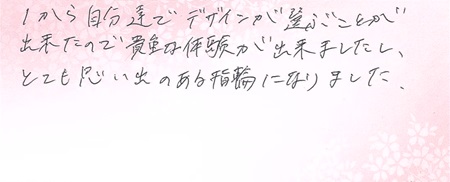 1から自分達でデザインが登ぶことが
出来たので貴重な体験が出来ましたし、
とても思い出のある指輪になりました。